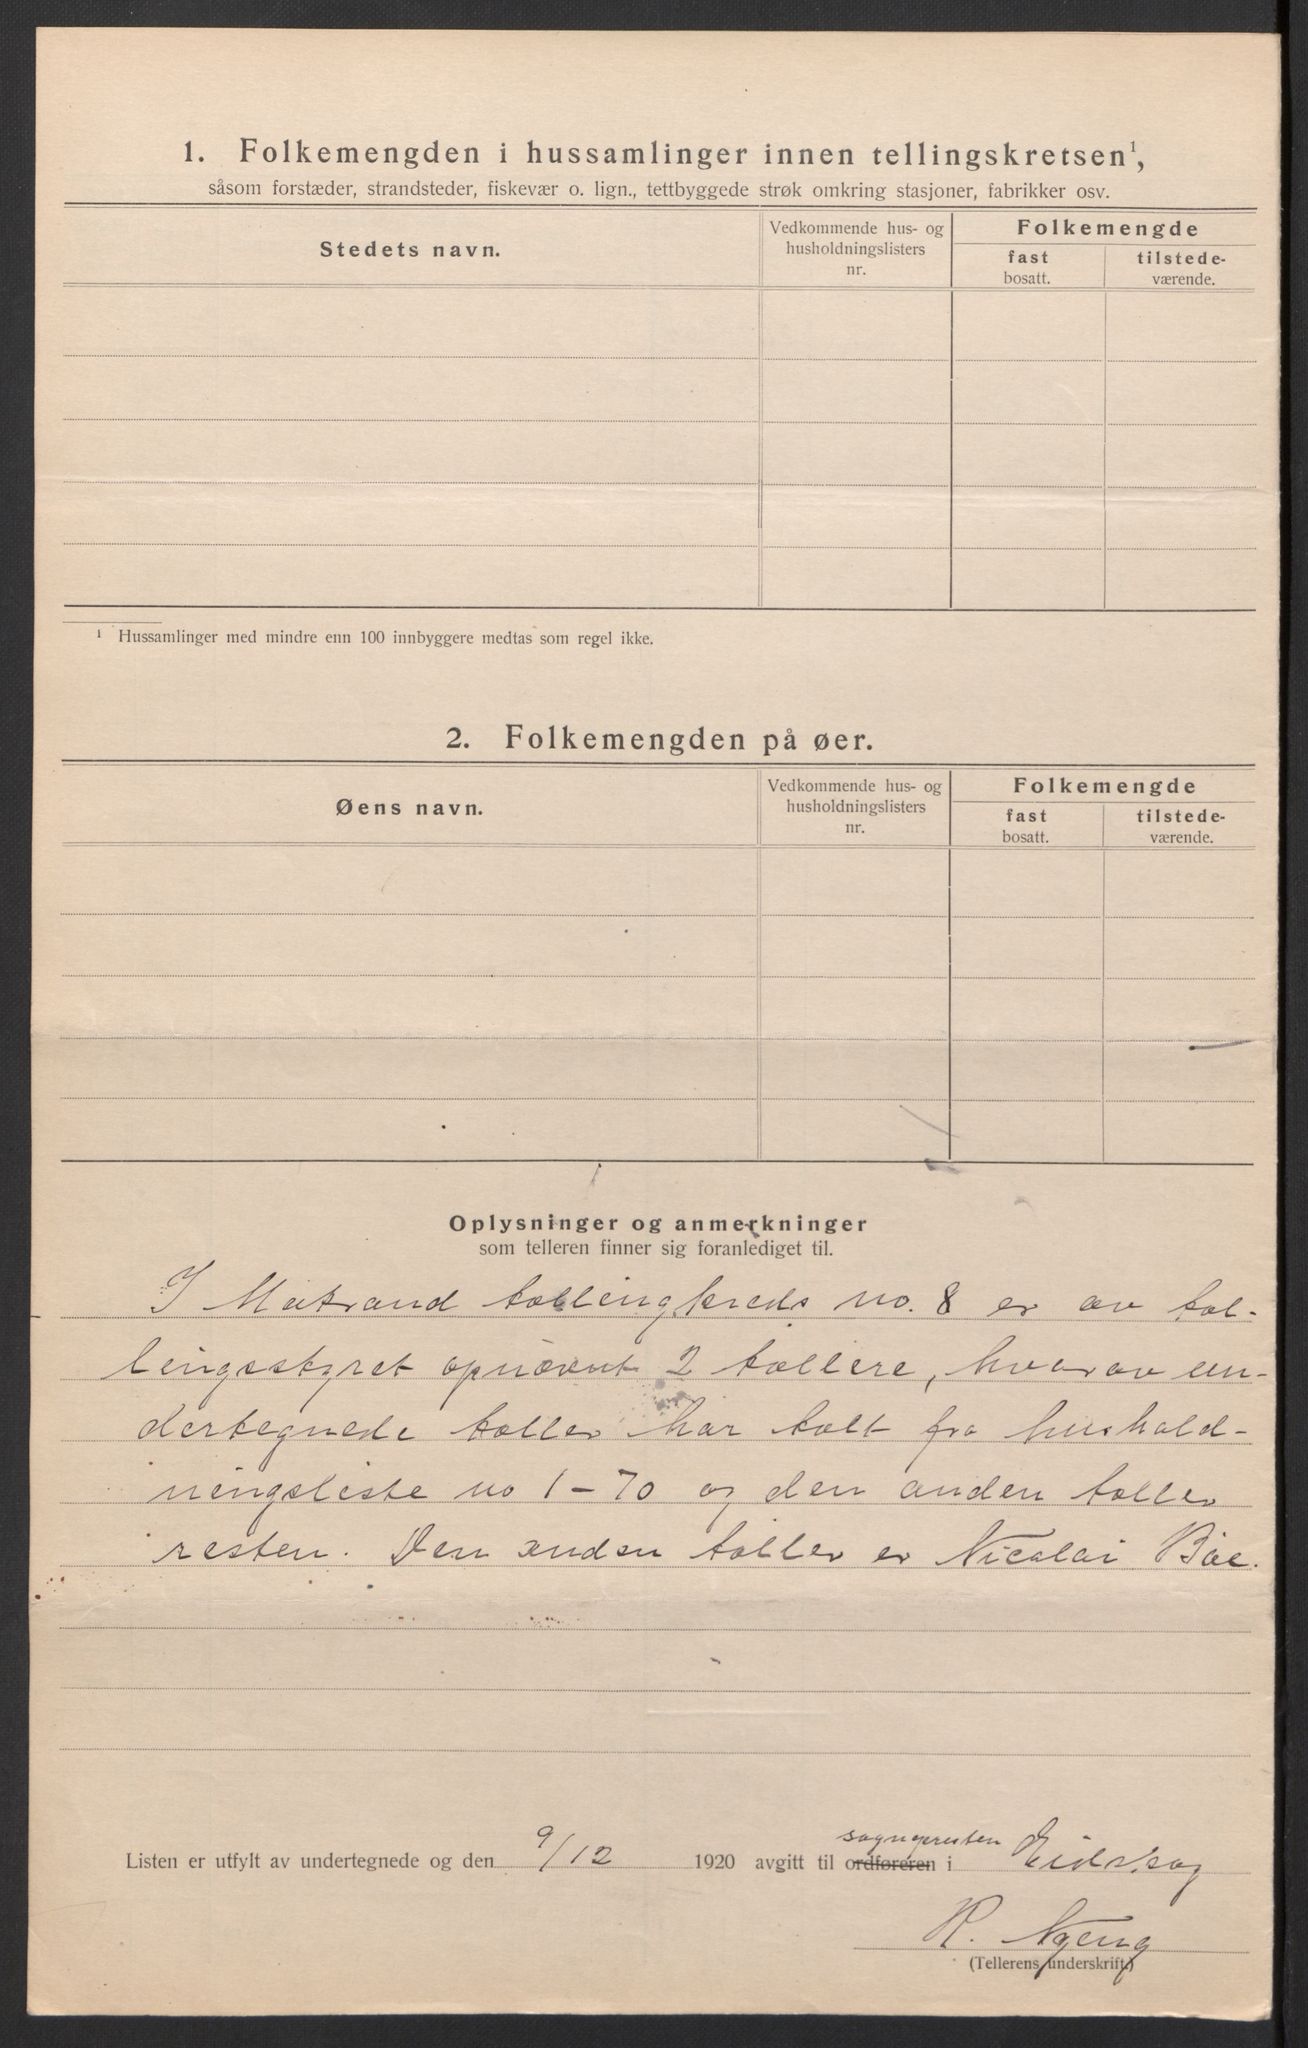 1. Folkemengden i hussamlinger innen tellingskretsen¹,
såsom forstæder, strandsteder, fiskevær o. lign., tettbyggede strøk omkring stasjoner, fabrikker osv.
Stedets navn.
Vedkommende hus- og
husholdningslisters
nr.
Folkemengde
fast
bosatt.
tilstede-
værende.
¹ Hussamlinger med mindre enn 100 innbyggere medtas som regel ikke.
2. Folkemengden på øer.
Øens navn.
Vedkommende hus- og
husholdningslisters
nr.
Folkemengde
fast
bosatt.
tilstede-
værende.
Oplysninger og anmerkninger
som telleren finner sig foranlediget til.
I Matrand tællingkreds no. 8 er av tæl-
lingsstyret opnævnt 2 tællere, hvorav un-
dertegnede tæller har talt fra hushold-
ningsliste no 1-70 og den anden tæller
resten. Den anden tæller er Nicolai Båe.
sognepresten
Listen er utfylt av undertegnede og den 9/12 1920 avgitt til ordføreren i Eidskog
K. Nyeng
(Tellerens underskrift.)